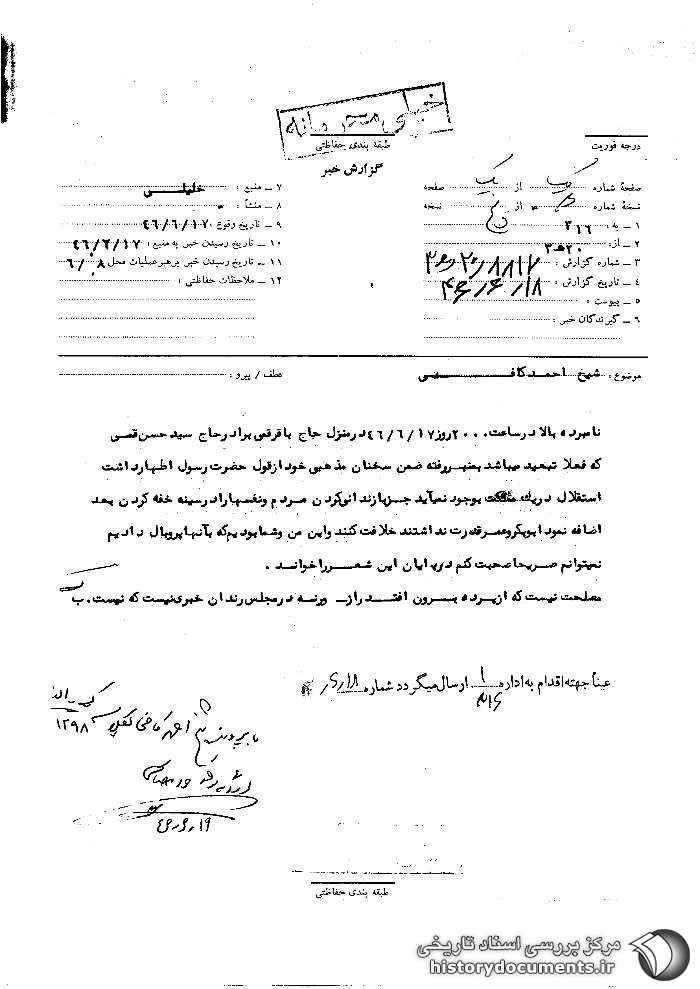 خیلی محرمانه
طبقه بندی حفاظتی
درجه فوریت
گزارش خبر
صفحهٔ شماره یک از یک صفحه
نسخهٔ شماره از نسخه
۱ ـ به : ۳۱۶
۲ ـ از : ۲۰ ه‍ ۳
۳ ـ شماره گزارش :
۴ ـ تاریخ گزارش : ۴۶/۶/۱۸
۵ ـ پیوست :
۶ ـ گیرندگان خبر :
۷ ـ منبع : خلیلی
۸ ـ منشأ :
۹ ـ تاریخ وقوع : ۴۶/۶/۱۷
۱۰ ـ تاریخ رسیدن خبر به منبع : ۴۶/۶/۱۷
۱۱ ـ تاریخ رسیدن خبر برهبر عملیات محل
۱۲ ـ ملاحظات حفاظتی :
موضوع : شیخ احمد کافی
عطف / پیرو :
نامبرده بالا در ساعت ۲۰۰۰ روز ۴۶/۶/۱۷ در منزل حاج باقر قمی برادر حاج سید حسن قمی
که فعلا تبعید میباشد بمنبر رفته ضمن سخنان مذهبی خود از قول حضرت رسول اظهار داشت
استقلال در یک مملکت بوجود نمیآید جز با زندانی کردن مردم و نفسها را در سینه خفه کردن بعد
اضافه نمود ابوبکر و عمر قدرت نداشتند خلافت کنند و این من و شما بودیم که بآنها پر و بال دادیم
نمیتوانم صریحا صحبت کنم در پایان این شعر را خواند .
مصلحت نیست که از پرده برون افتد راز ـ ورنه در مجلس رندان خبری نیست که نیست . ب
عیناً جهته اقدام به اداره ۳۱۶ ارسال میگردد شماره ۶/۱۸
۱۲۹۸
۴۶/۶/۱۹
طبقه بندی حفاظتی
مرکز بررسی اسناد تاریخی
historydocuments.ir